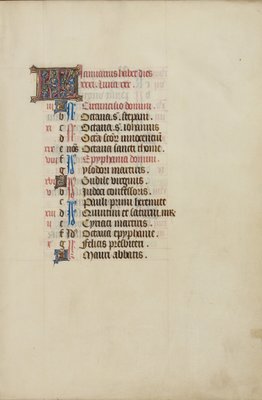 KL Ianuarius habet dies
xxxi. luna xxx
A Circumcisio domini.
b Octava s. stepani.
xi c Octava s. iohannis
d Octa scor innocentiu
xix e nos Octava sancti thome.
viii f Epyphania domini.
g ysodori martiris.
A Gudile virginis.
b Iudoci confessoris.
c Pauli primi heremite
d Quintini et
e Ciriaci martiris.
f Id' Octava epyphanie.
g Felicis presbiteri.
A Mauri abbatis.